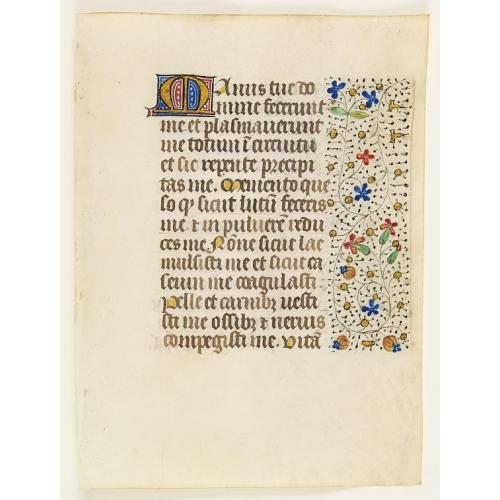 Manus tue do
mine fecerunt
me et plasmaverunt
me totum ī circuitu
et sic repente precipi
tas me. Memento que
so qʒ sicut lutum feceris
me. ⁊ in pulverē redu
ces me. None sicut lac
mulsisti me et sicut ca
seum me coagulasti.
Pelle et carnibʒ vesti
sti me ossibʒ ⁊ nervis
compegisti me. Vitā